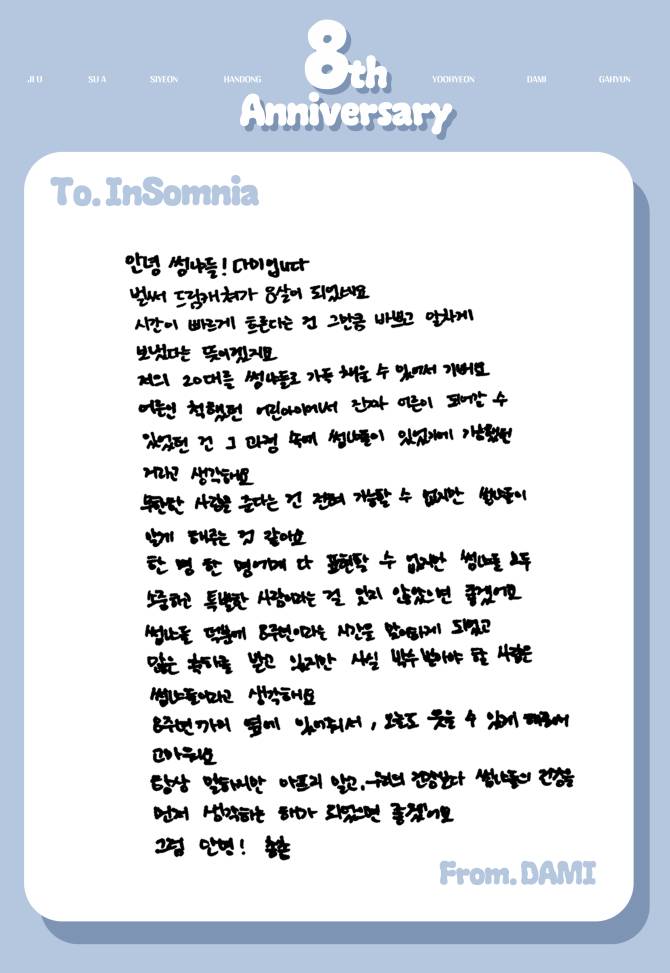 JI U SU A SIYEON HANDONG YOOHYEON DAMI GAHYUN
8th
Anniversary
To. InSomnia
안녕 썸냐들! 다미입니다
벌써 드림캐쳐가 8살이 되었네요
시간이 빠르게 흐른다는 건 그만큼 바쁘고 알차게
보냈다는 뜻이겠지요
저의 20대를 썸냐들로 가득 채울 수 있어서 기뻐요
어른인 척했던 어린아이에서 진짜 어른이 되어갈 수
있었던 건 그 과정 속에 썸냐들이 있었기에 가능했던
거라고 생각해요
무한한 사랑을 준다는 건 전혀 가능할 수 없지만 썸냐들이
알게 해주는 것 같아요
한 명 한 명에게 다 표현할 수 없지만 썸냐들 모두
소중하고 특별한 사람이라는 걸 잊지 않았으면 좋겠어요
썸냐들 덕분에 8주년이라는 시간을 맞이하게 되었고
많은 축하를 받고 있지만 사실 박수 받아야 할 사람은
썸냐들이라고 생각해요
8주년까지 옆에 있어줘서, 오늘도 웃을 수 있게 해줘서
고마워요
항상 말하지만 아프지 말고, 우리의 건강보다 썸냐들의 건강을
먼저 생각하는 해가 되었으면 좋겠어요
그럼 안녕!
From. DAMI